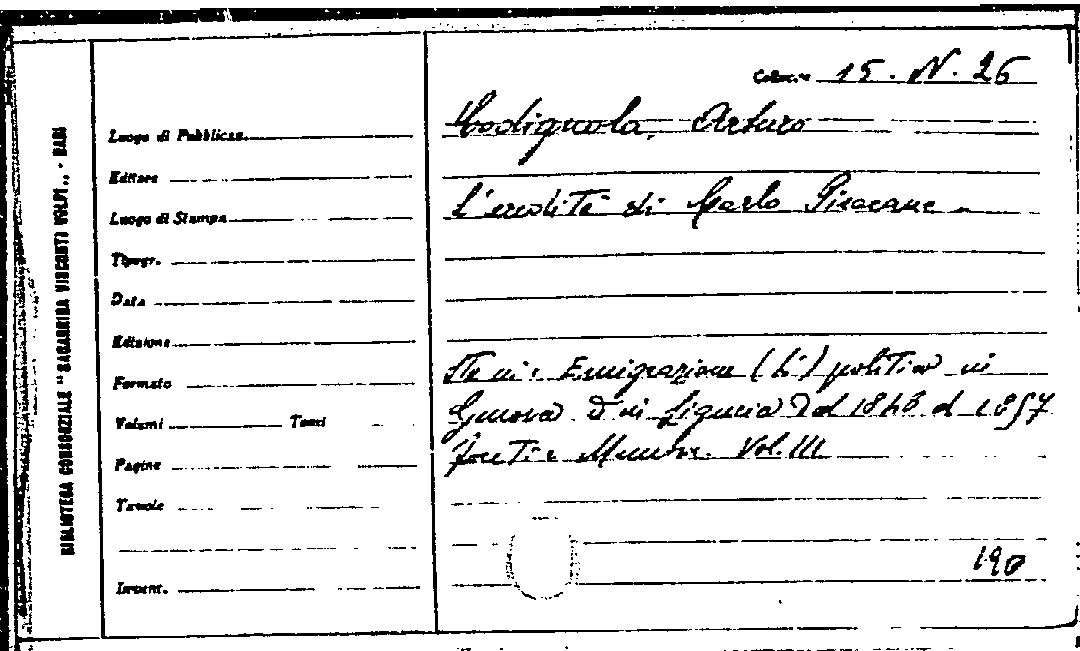 BIBLIOTECA CONSORZIALE "SAGARRIGA VISCONTI VOLPI„ - BARI
Colloc.ne 15. N. 26
Luogo di Pubblicaz.
Editore
Luogo di Stampa
Tipogr.
Data
Edizione
Formato
Volumi Tomi
Pagine
Tavole
Invent.
Codignola, Arturo
L'eredità di Carlo Pisacane
Sta in: Emigrazione (L') politica in
Genova ed in Liguria dal 1848 al 1857
Fonti e Memorie. Vol. III
190